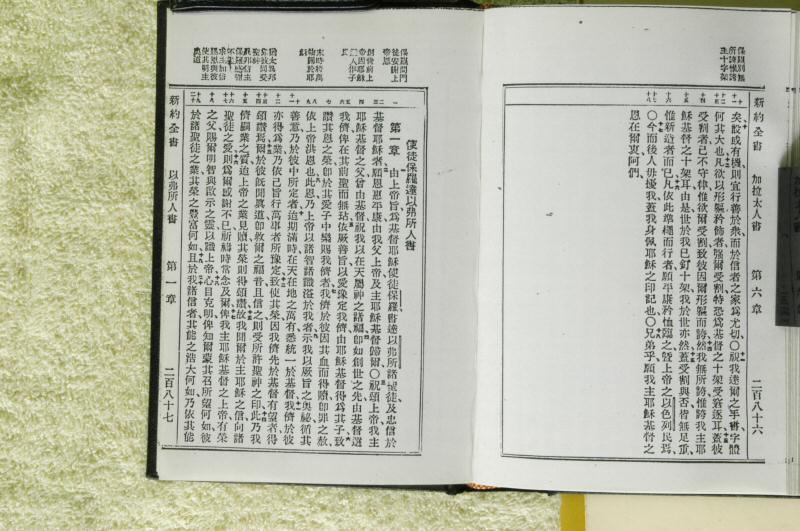 新約全書 加拉太人書 第六章 二百八十六
矣故或有機則宜行善於衆而於信者之家爲尤切○視我達爾之手書字體
何其大也凡欲以形軀矜飾者強爾受割特恐爲基督之十架受窘逐耳蓋彼
受割者己不守律惟欲爾受割致彼因爾形軀而誇然我無所誇惟誇我主耶
穌基督之十架耳由是世於我已釘十架我於世亦然蓋受割與否皆無足重
惟新造者而已凡依此準繩而行者願平康矜恤臨之曁上帝之以色列民焉
○今而後人毋擾我蓋我身佩耶穌之印記也○兄弟乎願我主耶穌基督之
恩在爾衷阿們
新約全書 以弗所人書 第一章 二百八十七
使徒保羅達以弗所人書
第一章 由上帝旨爲基督耶穌使徒保羅書達以弗所諸聖徒及忠信於
基督耶穌者願恩惠平康由我父上帝及主耶穌基督歸爾○祝頌上帝我主
耶穌基督之父曾由基督祝我以在天屬神之諸福卽如創世之先由基督選
我儕俾在其前聖而無玷依厥善旨以愛豫定我儕由耶穌基督得爲其子致
讚其恩之榮卽於其愛子中樂賜我儕者我儕於彼因其血而得贖卽罪之赦
依上帝洪恩也此恩乃上帝以諸智諸識溢於我者示我以厥旨之奧祕循其
善意乃於彼中所定者迨期滿時在天在地之萬有悉統一於基督我儕於彼
亦得爲業乃依己旨行萬事者所豫定致使其榮因我儕先於基督有望者得
頌讚焉爾於彼旣聞眞道卽救爾之福音且信之則受所許聖神之印此乃我
儕嗣業之質迨上帝之業見贖其榮則得頌讚故我聞爾於主耶穌之信向諸
聖徒之愛則爲爾感謝不已祈禱時常念及爾俾我主耶穌基督之上帝有榮
之父賜爾明智與啟示之靈以識上帝心目克明俾知爾蒙其召所望何如彼
於諸聖徒之業其榮之豐富何如且於我諸信者其能之浩大何如乃依其能